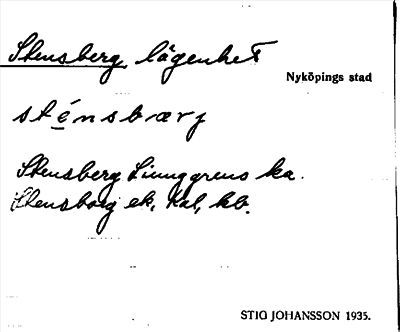 Stensberg, lägenhet
Nyköpings stad
sténsbærj
Stensberg Ljunggrens ka.
Stensborg ek, kal, kb.
STIG JOHANSSON 1935.